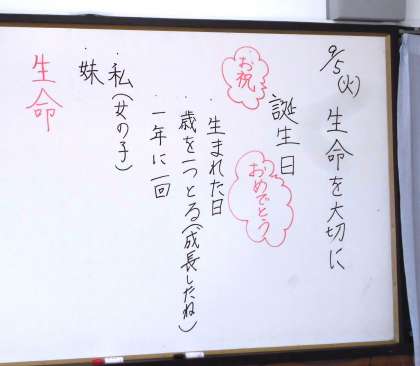 9/5(火) 生命を大切に
誕生日
お祝
おめでとう
・生まれた日
・歳を一つとる(成長したね)
・一年に一回
・私(女の子)
・妹
生命